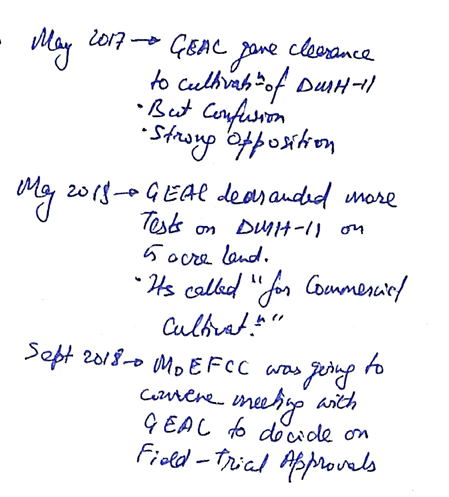 May 2017 → GEAC gave clearance
to cultivatⁿ of DMH-11
• But Confusion
• Strong Opposition
May 2018 → GEAC demanded more
Tests on DMH-11 on
5 acre land.
• Its called "for Commercial
Cultivat.ⁿ"
Sept 2018 → MoEFCC was going to
convene meeting with
GEAC to decide on
Field-Trial Approvals